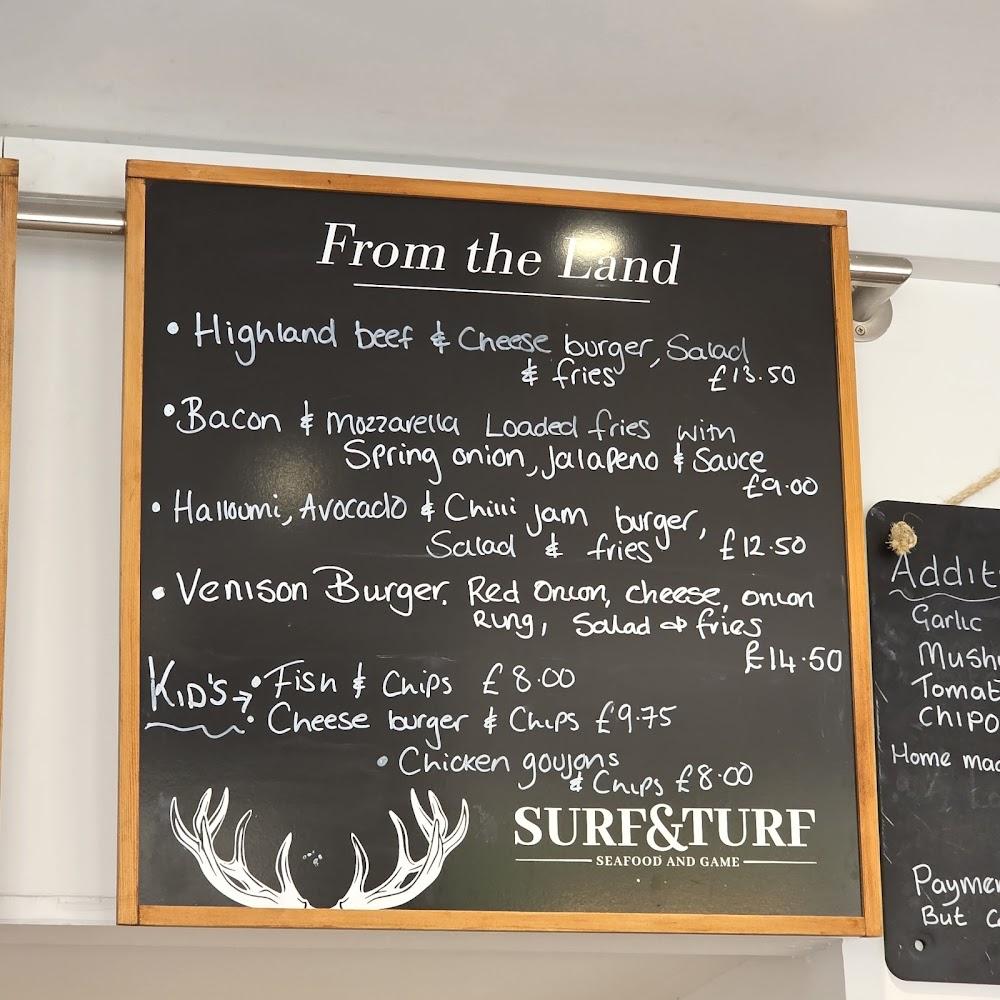 From the Land
• Highland beef & Cheese burger, Salad
& fries £13.50
• Bacon & Mozzarella Loaded fries with
Spring onion, Jalapeno & Sauce
£9.00
• Halloumi, Avocado & Chilli Jam burger,
Salad & fries £12.50
• Venison Burger. Red Onion, cheese, onion
Ring, Salad & fries
£14.50
KID'S → • Fish & Chips £8.00
• Cheese burger & Chips £9.75
• Chicken goujons
& Chips £8.00
SURF&TURF
SEAFOOD AND GAME
Garlic
Home
But